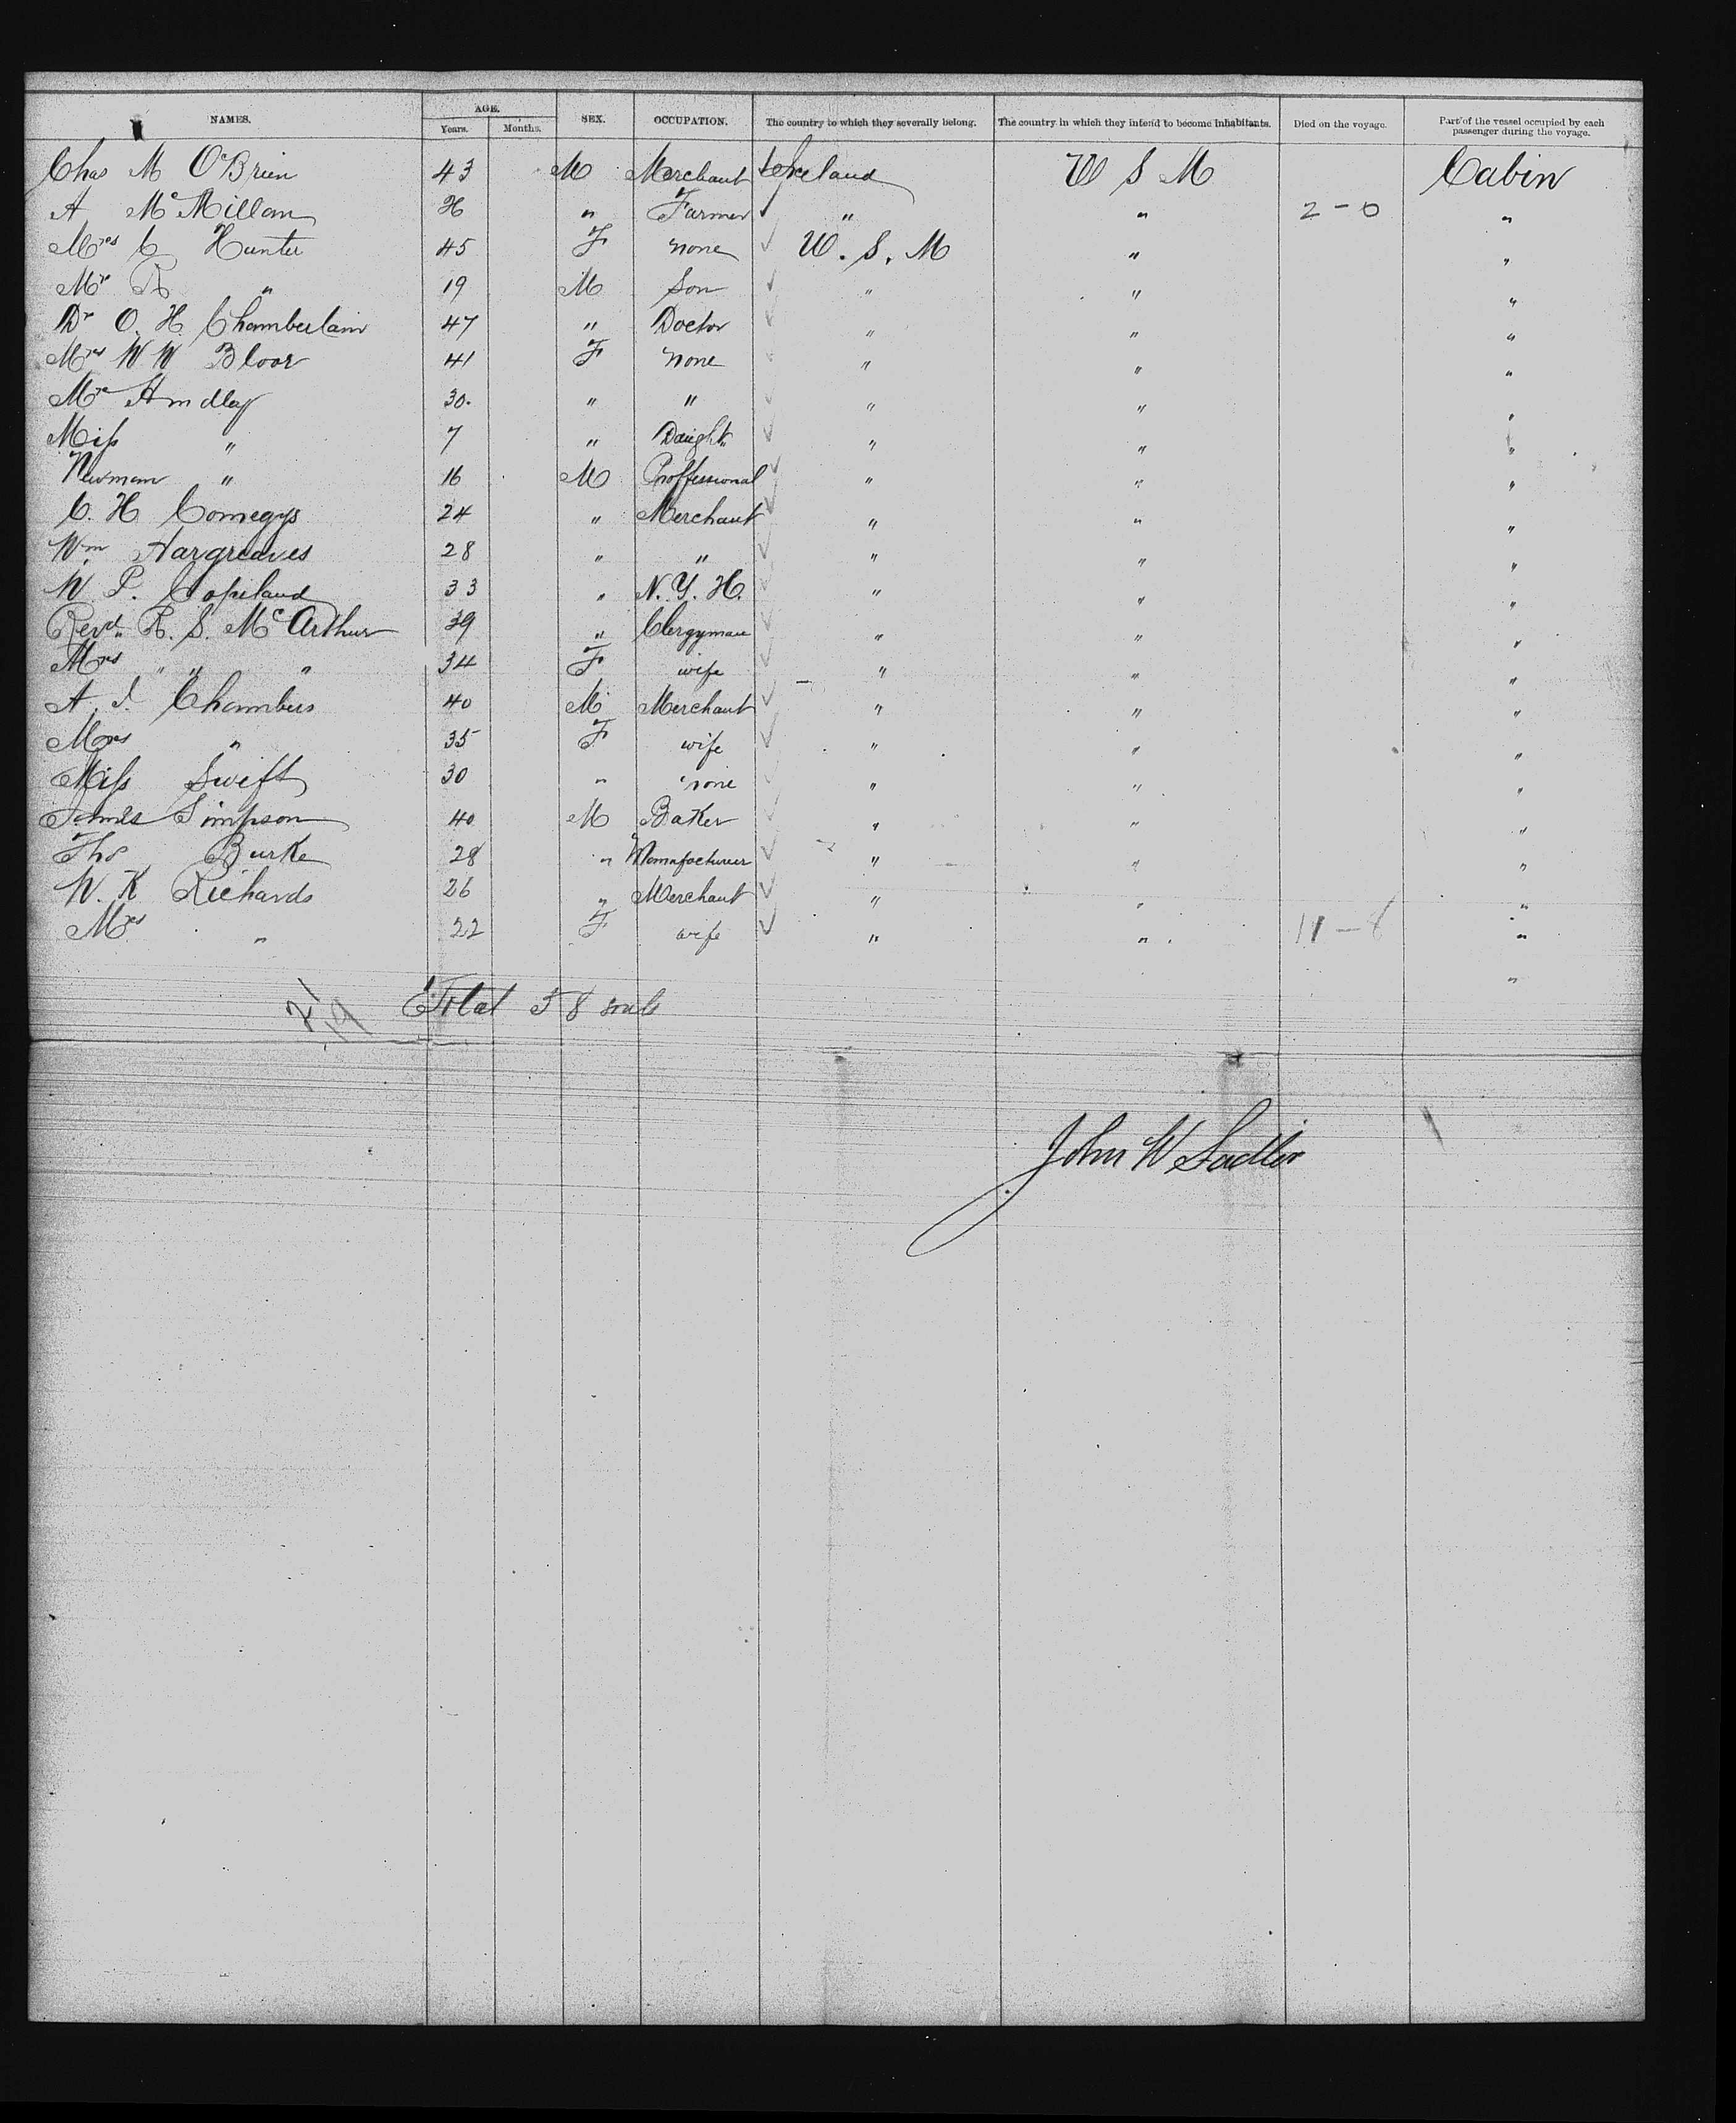 NAMES. AGE. Years. Months. SEX. OCCUPATION. The country to which they severally belong. The country in which they intend to become inhabitants. Died on the voyage. Part of the vessel occupied by each passenger during the voyage.
Chas M O'Brien 43 M Merchant Ireland U S A Cabin
A McMillan " Farmer " " 2-0 "
Mrs C Hunter 45 F none U. S. A " "
Mr R " 19 M Son " " "
Dr O. H. Chamberlain 47 " Doctor " " "
Mrs W W Bloor 41 F none " " "
Mrs Handley 30. " " " " "
Miss " 7 " Daught. " " "
Newman " 16 M Proffessional " " "
C. H Comegys 24 " Merchant " " "
Wm Hargreaves 28 " " " " "
W P. Copeland 33 " N. Y. H. " " "
Revd R. S. McArthur 39 " Clergyman " " "
Mrs " " " 34 F wife " " "
A. J. Chambers 40 M Merchant " " "
Mrs " 35 F wife " " "
Miss Swift 30 " none " " "
James Simpson 40 M Baker " " "
Thos Burke 28 " Manufacturer " " "
W. K Richards 26 " Merchant " " "
Mrs " 22 F wife " " 11-8 "
"
21
19
Total 58 souls
John W Sadler